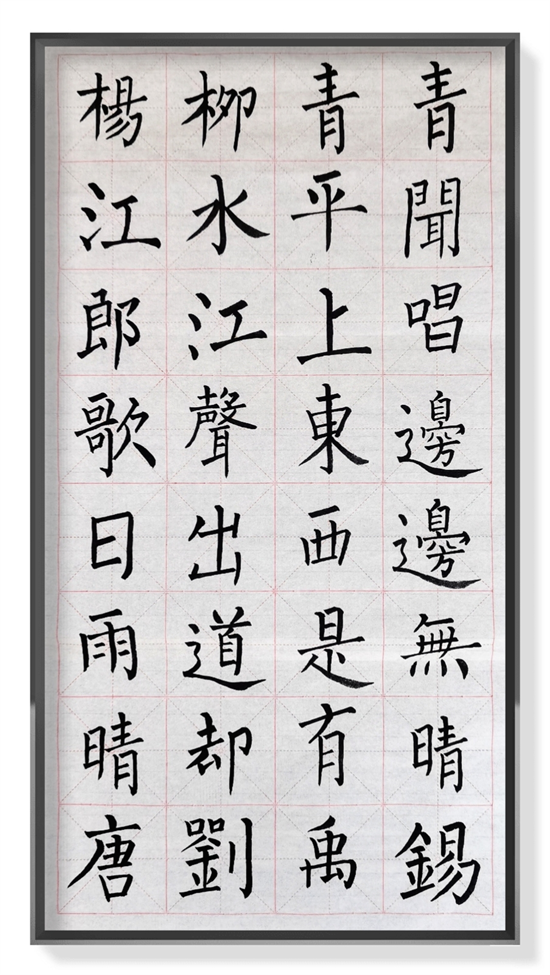 楊柳青青
江水平聞
郎江上唱
歌聲東邊
日出西邊
雨道是無
晴却有晴
唐劉禹錫